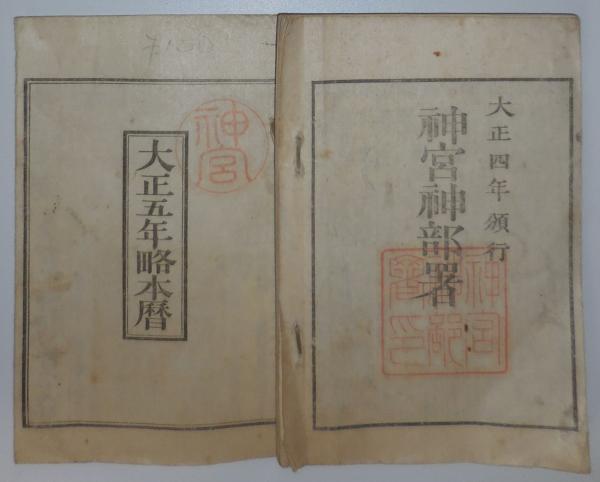 大正四年頒行
神宮神部署
神宮神部署印
神宮
大正五年略本暦